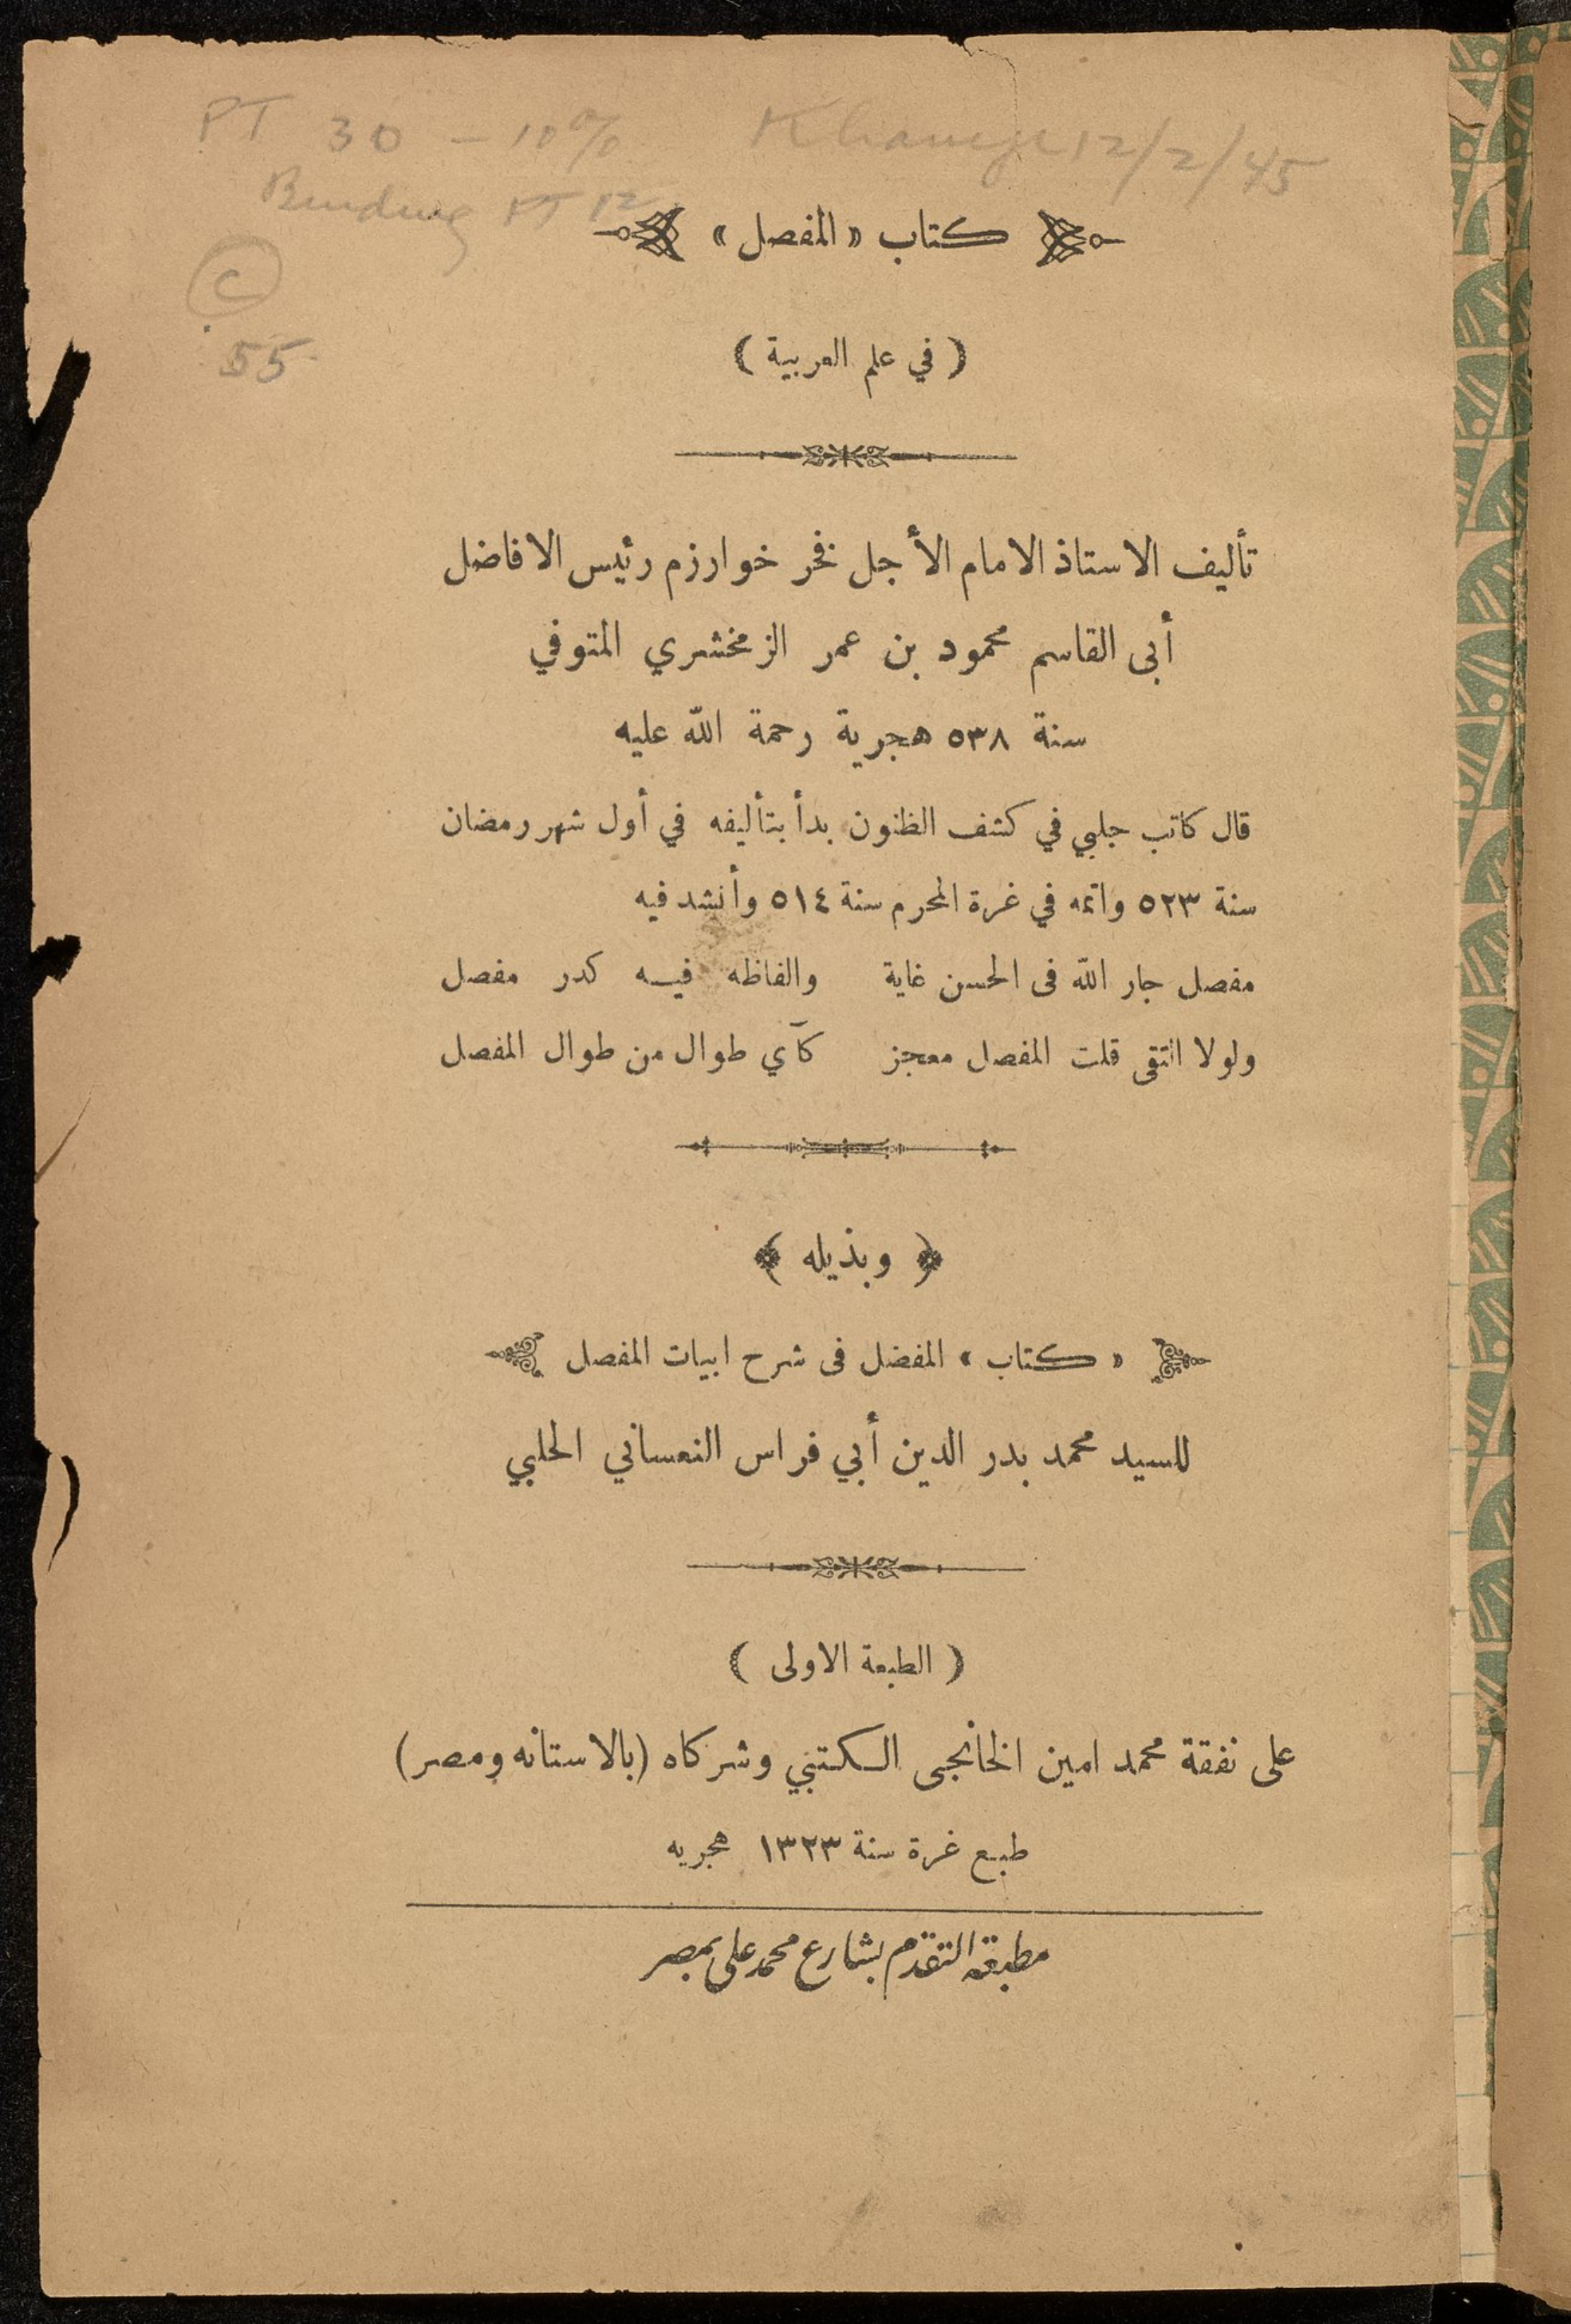 PT 30 - 10% Khaneji 12/2/45
Binding PT 12
C
55
كتاب «المفصل»
(في علم العربية)
تأليف الاستاذ الامام الأجل فخر خوارزم رئيس الافاضل
أبى القاسم محمود بن عمر الزمخشري المتوفي
سنة ٥٣٨ هجرية رحمة الله عليه
قال كاتب جلبي في كشف الظنون بدأ بتأليفه في أول شهر رمضان
سنة ٥٢٣ واتمه في غرة المحرم سنة ٥١٤ وأنشد فيه
مفصل جار الله فى الحسن غاية والفاظه فيه كدر مفصل
ولولا التقى قلت المفصل معجز كآي طوال من طوال المفصل
﴿ وبذيله ﴾
«كتاب» المفضل فى شرح ابيات المفصل
للسيد محمد بدر الدين أبي فراس النعساني الحلبي
(الطبعة الاولى)
على نفقة محمد امين الخانجى الكتبي وشركاه (بالاستانه ومصر)
طبع غرة سنة ١٣٢٣ هجريه
مطبعة التقدم بشارع محمد على بمصر